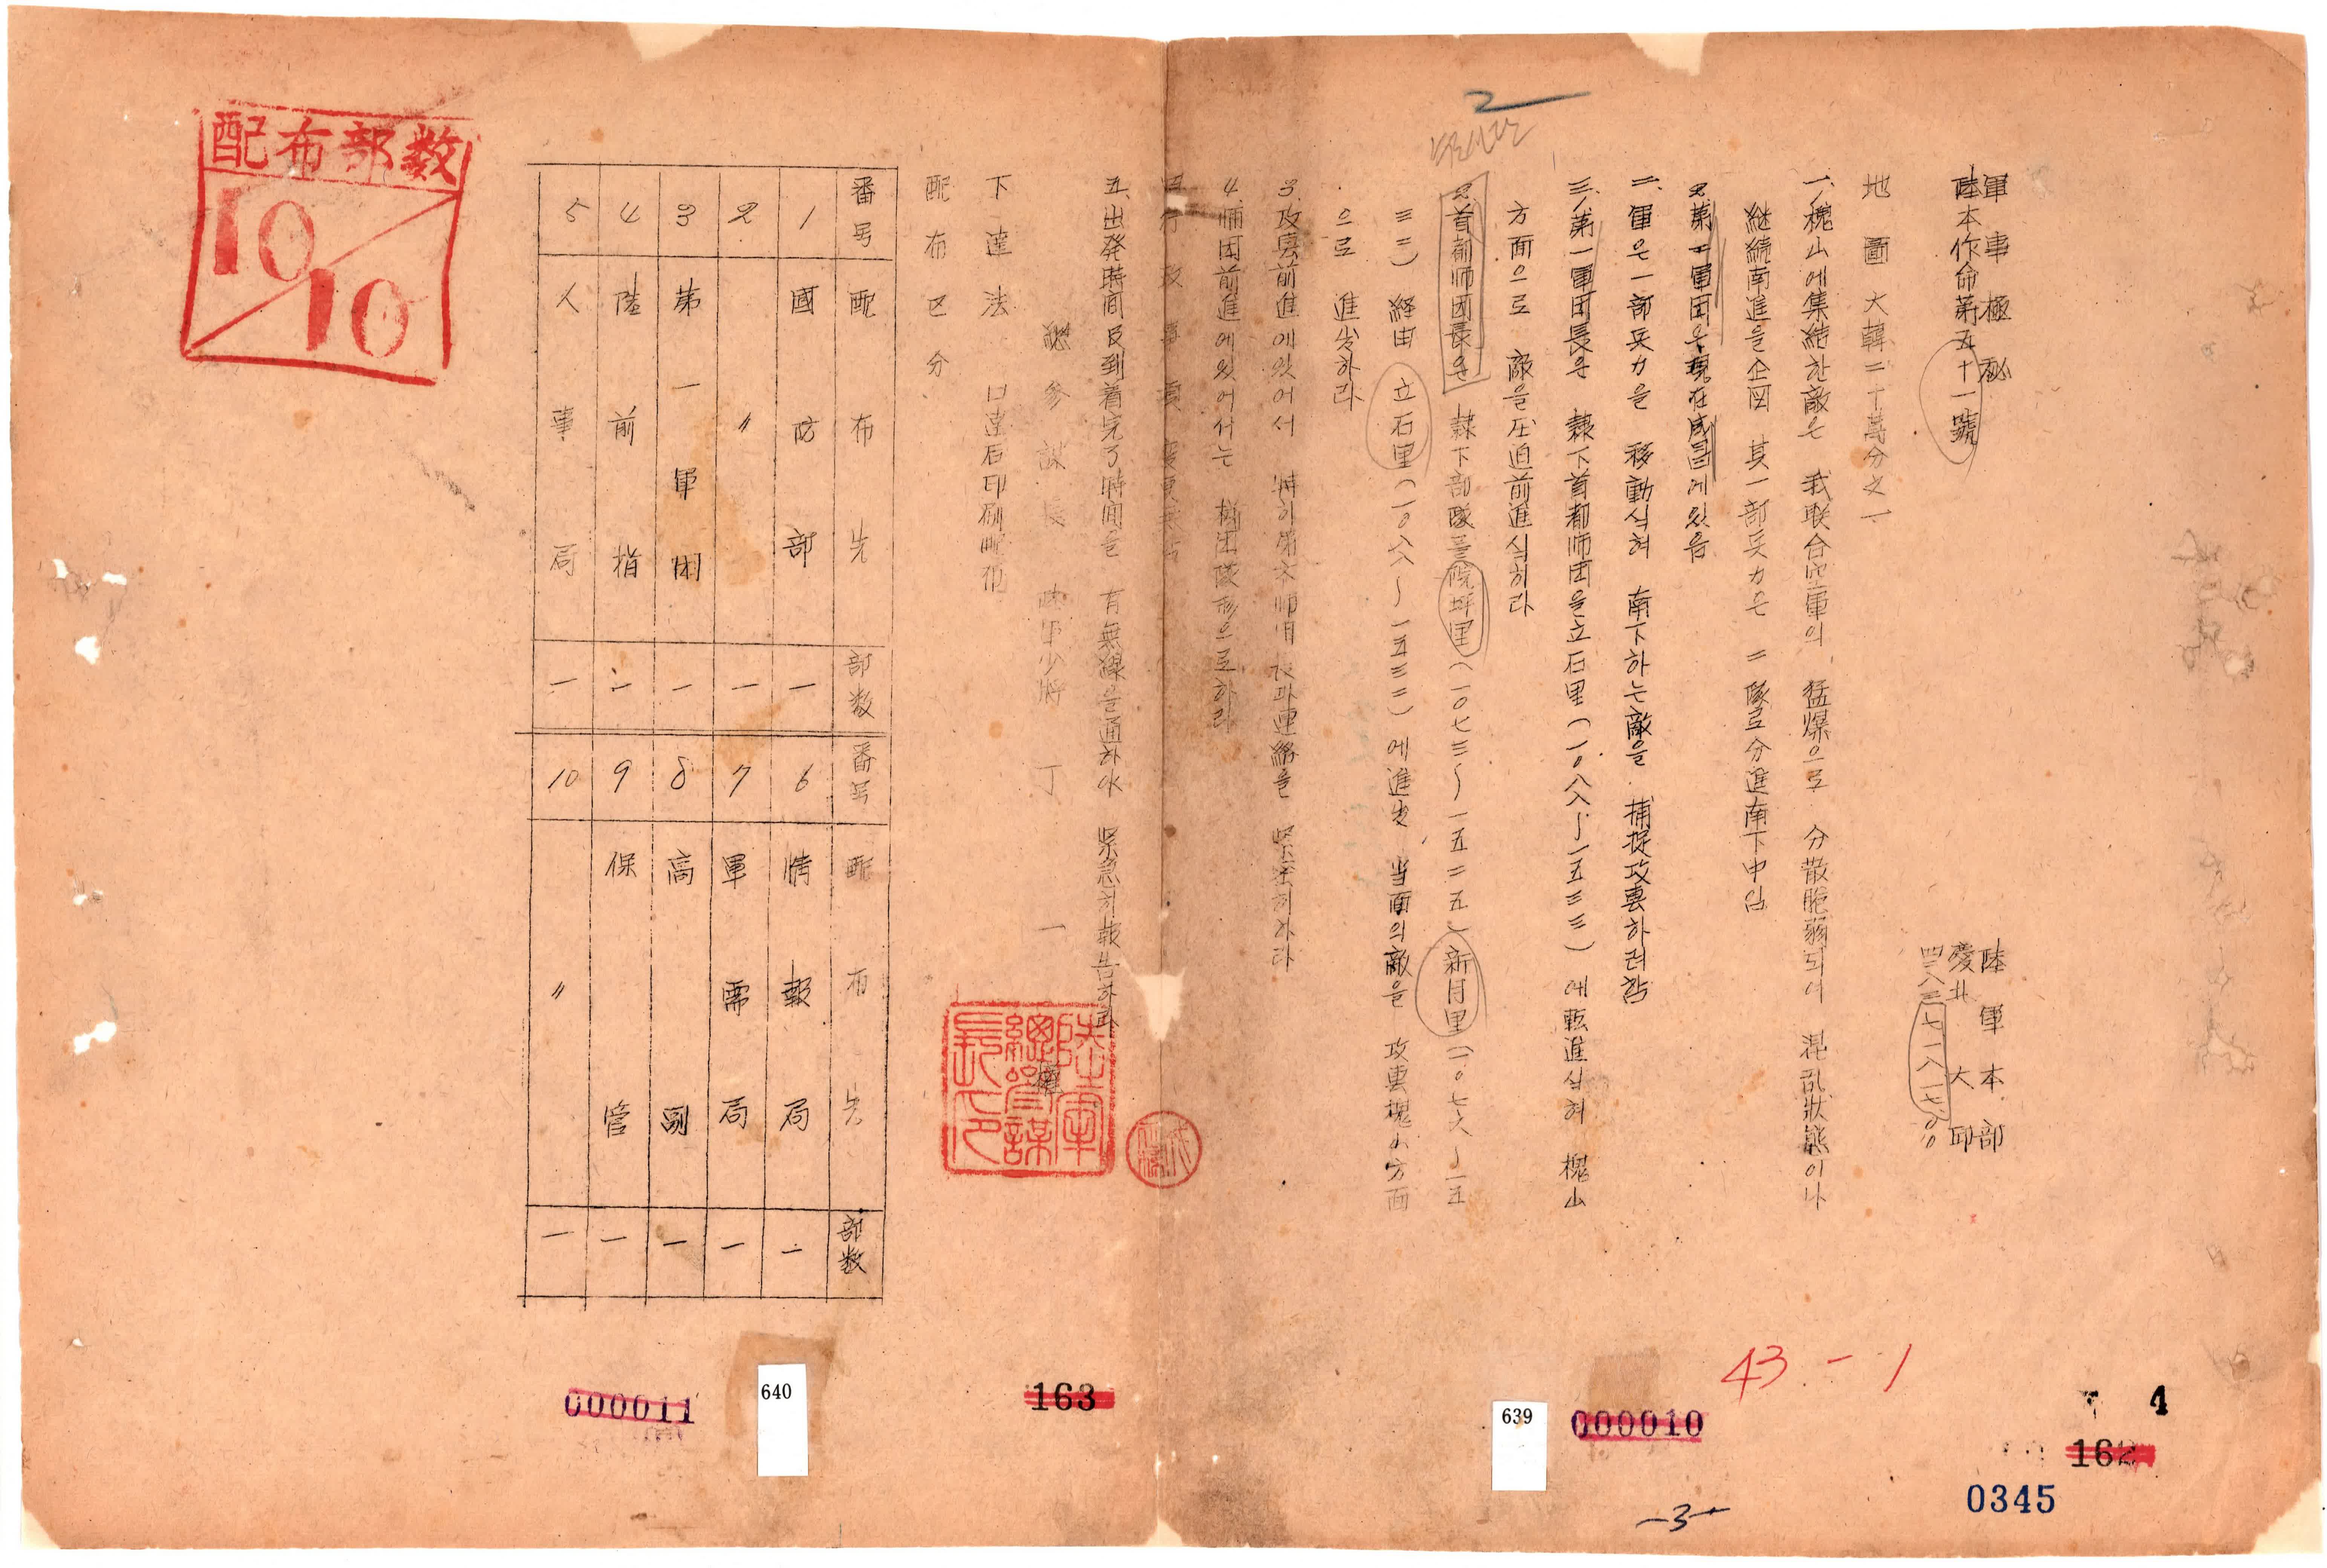 軍事極秘
陸本作命第五十一號
陸軍本部
慶北大邱
四二八三、七、一八、一七、00
地圖 大韓二十萬分之一
一、槐山에集結한敵은 我联合空軍의 猛爆으로 分散脆弱되여 混乱狀態이나
継続南進을企図 其一部兵力은 二隊로分進南下中임
2.第二軍团은現在咸昌에있음
二、軍은一部兵力을 移動식혀 南下하는敵을 捕捉攻擊하려함
三、第一軍团長은 隷下首都师团을立石里(一0八八~一五三三)에転進식혀 槐山
方面으로 敵을圧迫前進식히라
2.首都师団長은 隷下部隊를院坪里(一0七三~一五二五)新月里(一0七六~一五
三二) 経由 立石里(一0八八~一五三三)에進出 当面의敵을 攻擊槐山方面
으로 進出하라
3.攻擊前進에있어서 特히第六师団長과連絡을 緊密히하라
4.师团前進에있어서는 梯团隊形으로하라
四、行政事項 変更없음
五、出発時間及到着完了時間을 有無線을通하야 緊急히報告하라
總參謀長 陸軍少將 丁一權
陸軍總參謀長印
下達法 口達后印刷配布
配布区分
番号 配布先 部数 番号 配布先 部数
1 國防部 一 6 情報局 一
2 〃 一 7 軍需局 一
3 第一軍团 一 8 高副 一
4 陸前指 一 9 保管 一
5 人事局 一 10 〃 一
配布部数
10/10
2
43.-1
000011
640
163
639
000010
4
162
0345
-3-